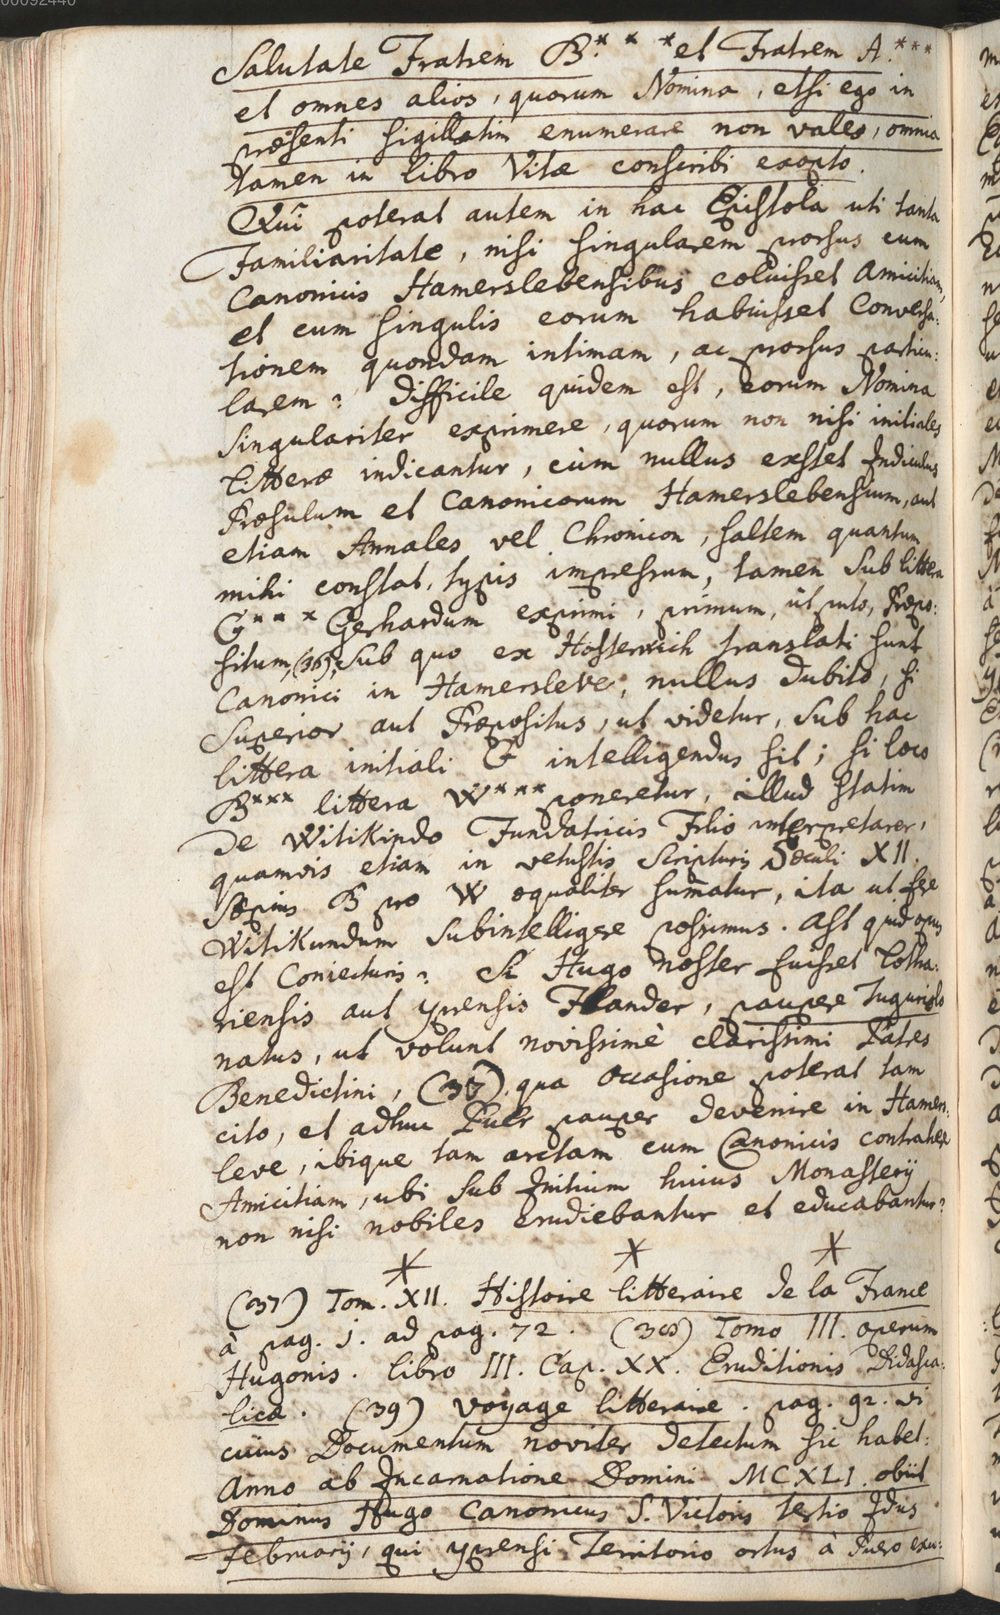 Salutate Fratrem B.* * * et Fratrem A.***
et omnes alios, quorum Nomina, etsi ego in
præsenti sigillatim enumerare non valeo, omnia
tamen in libro Vitæ conscribi exopto.
Qui poterat autem in hac Epistola uti tanta
Familiaritate, nisi singularem prorsus cum
Canonicis Hamerslebensibus coluisset Amicitiam,
et cum singulis eorum habuisset Conversa:
tionem quondam intimam, ac prorsus particu:
larem? difficile quidem est, eorum Nomina
singulariter exprimere, quorum non nisi initiales
litteræ indicantur, cùm nullus exstet Indiculus
Præsulum et Canonicorum Hamerslebensium, aut
etiam Annales vel Chronicon, saltem quantum
mihi constat, typis impressum, tamen sub littera
G*** Gerhardum exprimi, primum, ut puto, Præpo:
situm, (36), sub quo ex Hosterwich translati sunt
Canonici in Hamersleve, nullus dubito, si
Superior aut Præpositus, ut videtur, sub hac
littera initiali G intelligendus sit; si loco
B*** littera W*** poneretur, illud statim
de Witikindo Fundatricis Filio interpretarer,
quamvis etiam in vetustis scripturis Sæculi XII.
sæpius B pro W æqualiter sumatur, ita ut fere
Witikundum subintelligere possimus. Ast quid opus
est Coniecturis? Si Hugo noster fuisset Lotha:
riensis aut yprensis Flander, paupere Tuguriolo
natus, ut volunt novissimè clarissimi Patres
Benedictini, (37), qua occasione poterat tam
cito, et adhuc Puer pauper devenire in Hamers:
leve, ibique tam arctam cum Canonicis contrahere
Amicitiam, ubi sub Initium huius Monasterij
non nisi nobiles erudiebantur et educabantur?
* * *
(37) Tom. XII. Histoire litteraire de la France
à pag. 1. ad pag. 72. (38) Tomo III. operum
Hugonis. libro III. Cap. XX. Eruditionis Didasca:
licæ. (39) Voyage litteraire. pag. 92. vi
cuius Documentum noviter detectum sic habet:
Anno ab Incarnatione Domini MCXLI. obiit
Dominus Hugo Canonicus S. Victoris tertio Idus
februarij, qui yprensi Territorio ortus à Puero exu: